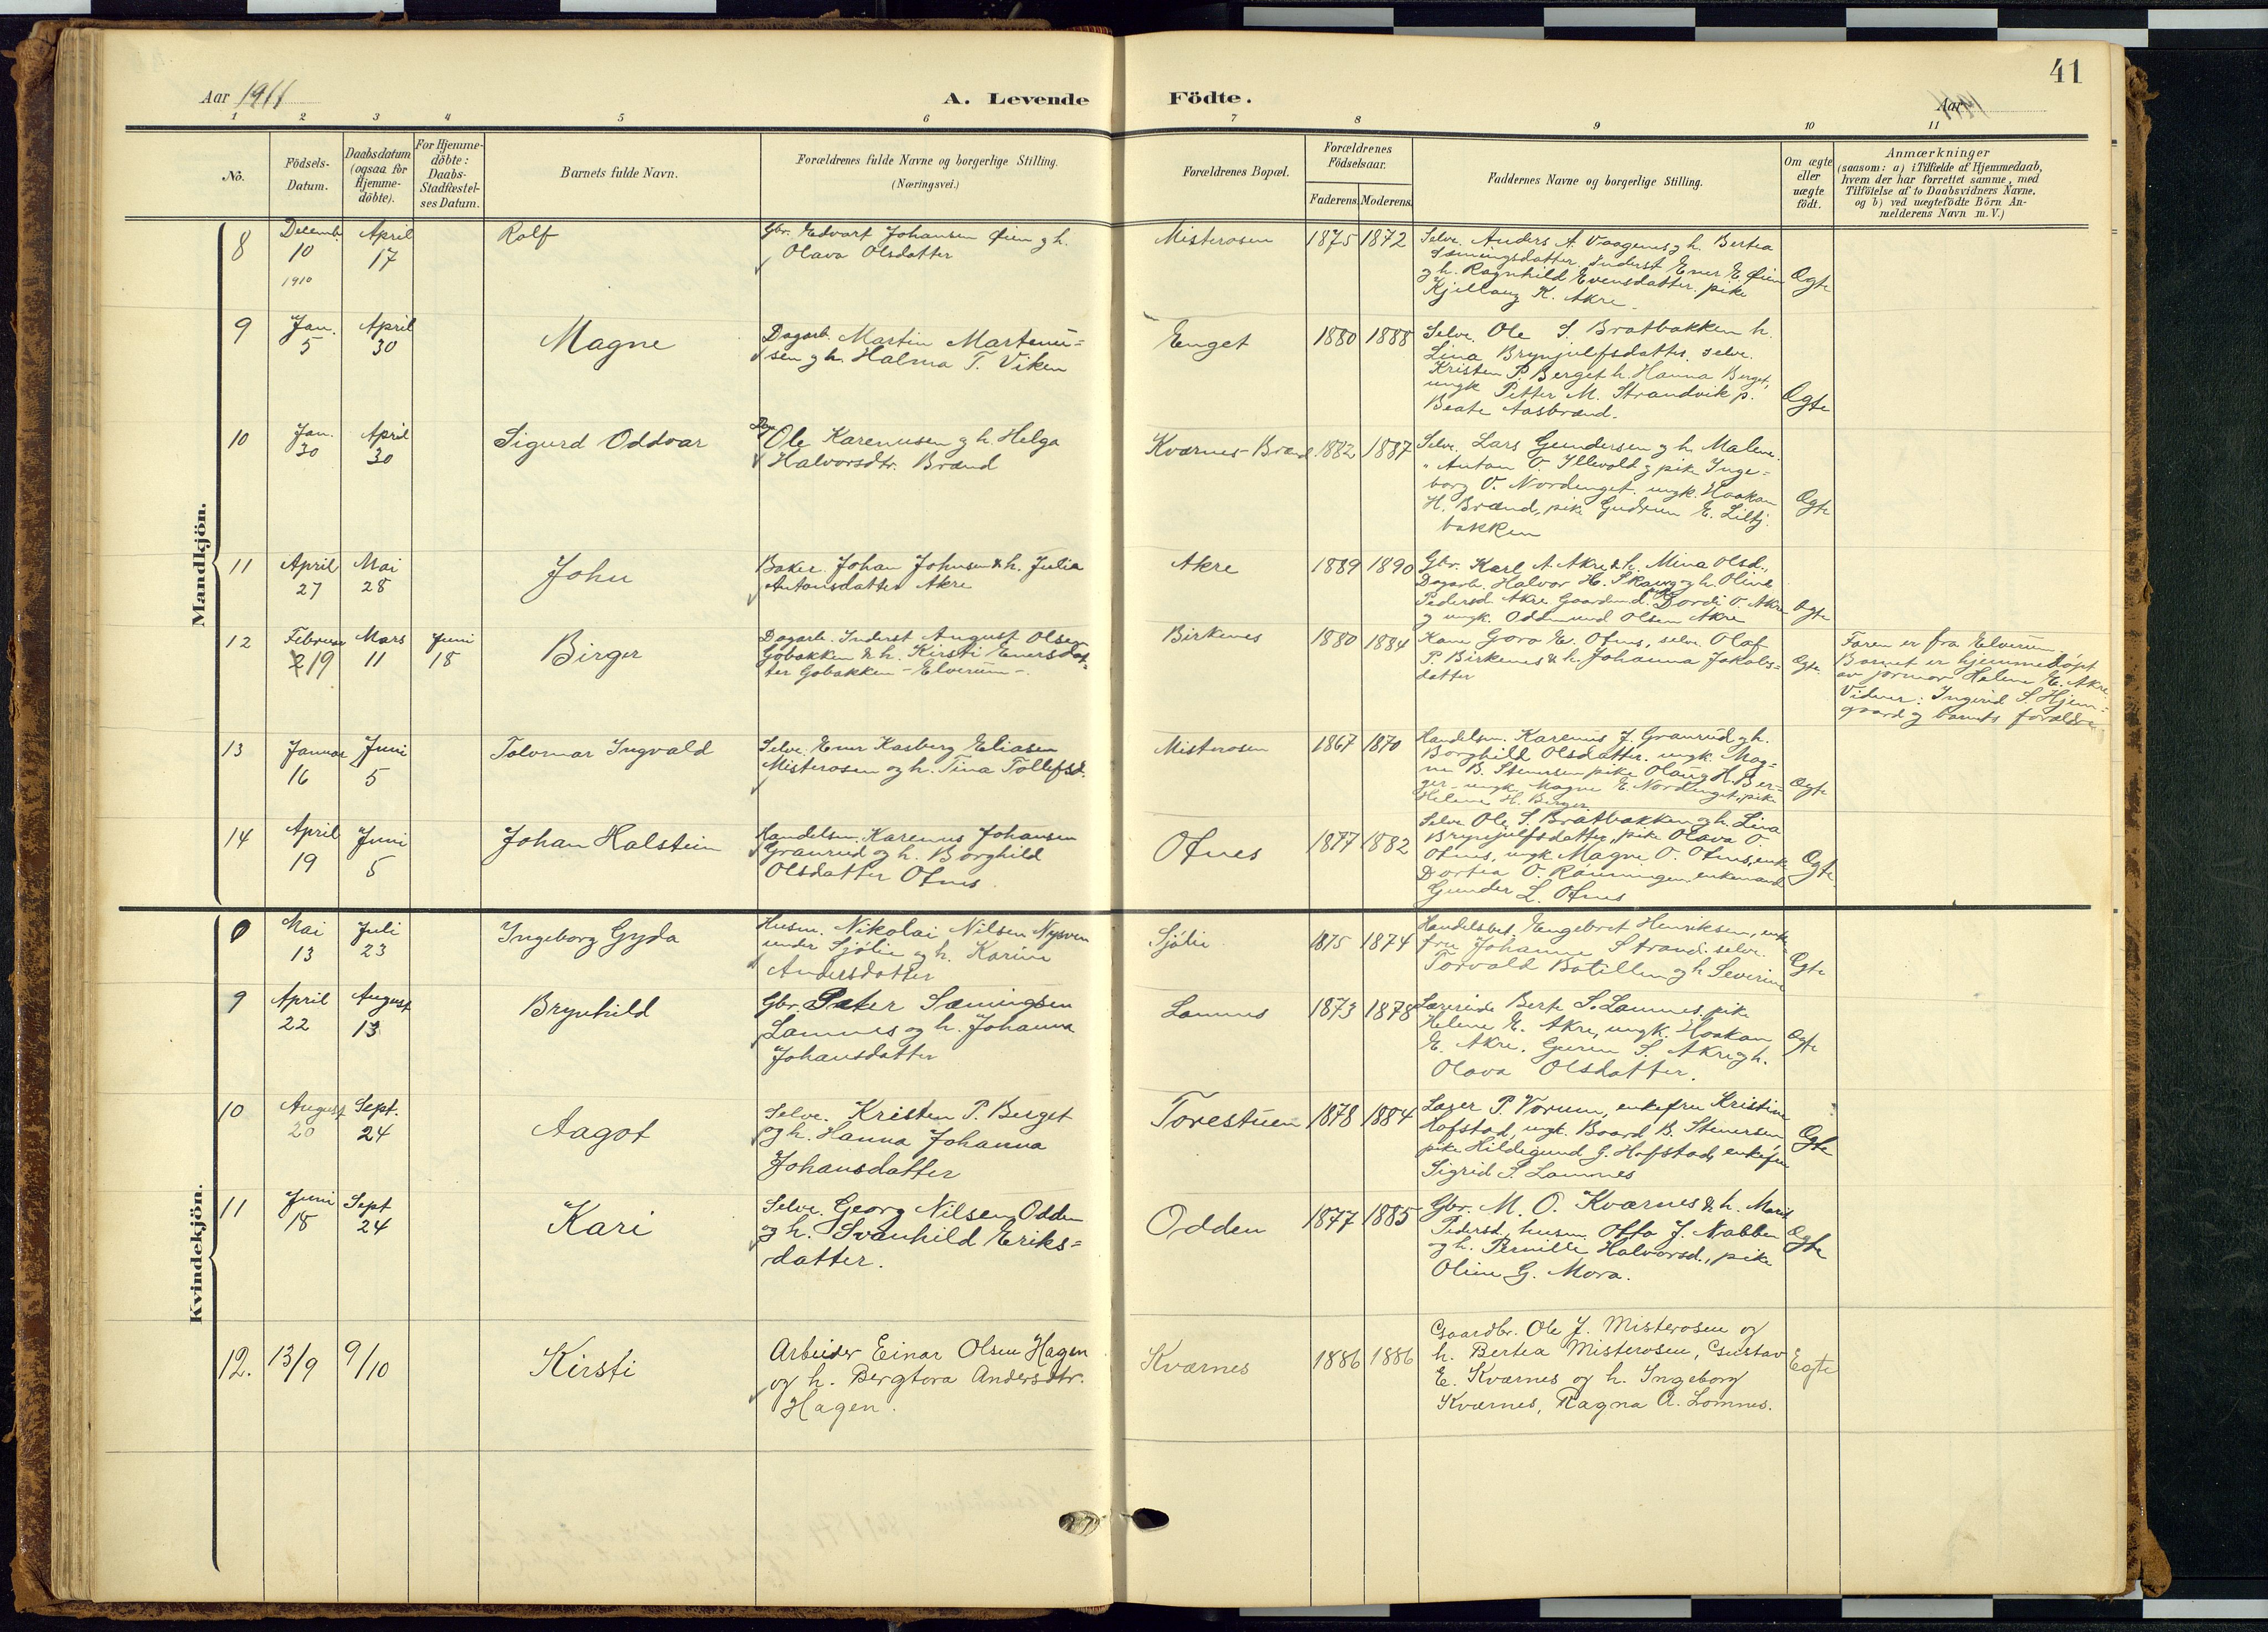 41
Aar 1911
A. Levende Födte.
Aar
1 2 3 4 5 6 7 8 9 10 11
No.
Födsels-Datum.
Daabsdatum (ogsaa for Hjemme-döbte).
For Hjemme-döbte: Daabs-Stadfæstel-ses Datum.
Barnets fulde Navn.
Forældrenes fulde Navne og borgerlige Stilling.
(Næringsvei.)
Forældrenes Bopæl.
Forældrenes Födselsaar.
Faderens. Moderens.
Faddernes Navne og borgerlige Stilling.
Om ægte eller uægte födt.
Anmærkninger
(saasom: a) i Tilfælde af Hjemmedaab,
hvem der har forrettet samme, med
Tilföielse af to Daabsvidners Navne,
og b) ved uægtefödte Börn An-
melderens Navn m. V.)
Mandkjön.
8 Decemb. 10 1910 April 17 Rolf
Gbr. Edvart Johansen Øien g h.
Olava Olsdatter
Misterosen 1875 1872
Selve. Anders A. Vaagenes g h. Bertea
Sæmingsdatter. Inderst Ener E. Øien
g h. Ragnhild Evensdatter. pike
Kjellaug K. Akre
Ægte
9 Jan. 5 April 30 Magne
Dagarb. Martin Martenu=
sen g h. Halma T. Viken
Enget 1880 1888
Selve. Ole S. Bratbakken h.
Lina Brynjulfsdatter. selve.
Kristen P. Berget h. Hanna Berget,
ungk Petter M. Strandvik p.
Beate Aasbrænd.
Ægte
10 Jan. 30 April 30 Sigurd Oddvar
Ole Karenusen g h. Helga
Halvorsdtr. Brænd
Kværnes-Brænd 1882 1887
Selv. Lars Gundersen g h. Malene.
" Anton O. Illevold g pik Inge=
borg O. Nordenget. ungk. Haakon
H. Brænd, pike Gudrun E. Lillj.
bakken
Ægte
11 April 27 Mai 28 John
Baker. Johan Johnsen & h. Julia
Antonsdatter Akre
Akre 1889 1890
Gbr. Karl A. Akre & h. Mina Olsd.,
Dagarb. Halvor H. Skaug og h. Oline
Pedersd. Akre. Gaardmd. Dordi O. Akre
g ungk. Oddmund Olsen Akre
Ægte
12 Februar 19 Mars 11 Juni 18 Birger
Dagarb. Inderst August Olsen
Gobakken & h. Kirsti Enersdat=
ter Gobakken - Elverum -.
Birkenes 1880 1884
Kone Goro E. Otnes, selve. Olaf
P. Birkenes & h. Johanna Jakobs=
datter
Ægte
Faren er fra Elverum.
Barnet er hjemmedøpt
av jormor Helene E. Akre.
Vidner: Ingerid S. Hjem=
gaard g barnets forældre
13 Januar 16 Juni 5 Tolvmar Ingvald
Selve. Ener Kasberg Eliasen
Misterosen og h. Tina Tollefsd.
Misterosen 1867 1870
Handelsm. Karenus J. Granrud g h.
Borghild Olsdatter. ungk. Mag=
ne B. Stenersen pike Olaug H. Ber=
ger - ungk. Magne E. Nordenget, pike
Helene H. Berger
Ægte
14 April 19 Juni 5 Johan Halstein
Handelsm. Karenus Johansen
Granrud og h. Borghild
Olsdatter Otnes.
Otnes 1877 1882
Selve Ole S. Bratbakken g h. Lina
Brynjulfsdatter, pike Olava O.
Otnes, ungk Magne O. Otnes, enke
Dortea O. Rønningen. enkemand
Gunder L. Otnes
Ægte
Kvindekjön.
Mai 13 Juli 23 Ingeborg Gyda
Husm. Nikolai Nilsen Nysven
under Sjølie og h. Karine
Andersdatter
Sjølie 1875 1874
Handelsbet. Engebret Henriksen, enke
fru Johanne Strand. selve.
Torvald Botillen g h. Severine
Ægte
9 April 22 August 13 Brynhild
Gbr. Peter Sæmingsen
Lomnes og h. Johanna
Johansdatter
Lomnes 1873 1878
Lærerinde Berte S. Lomnes. pike
Helene E. Akre, ungk. Haakon
E. Akre. Guren S. Akre g h.
Olava Olsdatter.
Ægte
10 August 20 Sept. 24 Aagot
Selve. Kristen P. Berget
og h. Hanna Johanna
Johansdatter
Torestuen 1878 1884
Lager P. Vorum, enkefru Kristine
Hofstad, ungk. Baard B. Stenersen,
pike Hildegund G. Hofstad, enkefru
Sigrid S. Lomnes
Ægte
11 Juni 18 Sept 24 Kari
Selve. Georg Nilsen Odden
og h. Svanhild Eriks=
datter.
Odden 1877 1885
Gbr. M. O. Kværnes & h. Marit
Pedersd., husm. Otto J. Nabben
og h. Pernille Halvorsd., pike
Oline G. Mora.
Ægte
12. 13/9 9/10 Kirsti
Arbeider Einar Olsen Hagen
og h. Bergtora Andersdtr.
Hagen.
Kværnes 1886 1886
Gaardbr. Ole J. Misterosen og
h. Bertea Misterosen, Gustav
E. Kværnes og h. Ingeborg
Kværnes, Ragna A. Lomnes.
Egte